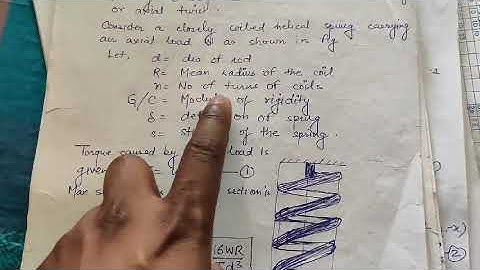 or axial turn.
Consider a closely coiled helical spring carrying
an axial load W as shown in fig
Let, d = dia of rod
R = Mean radius of the coil
n = No of turns of coils
G/C = Modu of rigidity
δ = def on of spring
s = st of the spring.
Torque caused by load is
given ①
Max s section is
16WR
πd³
②